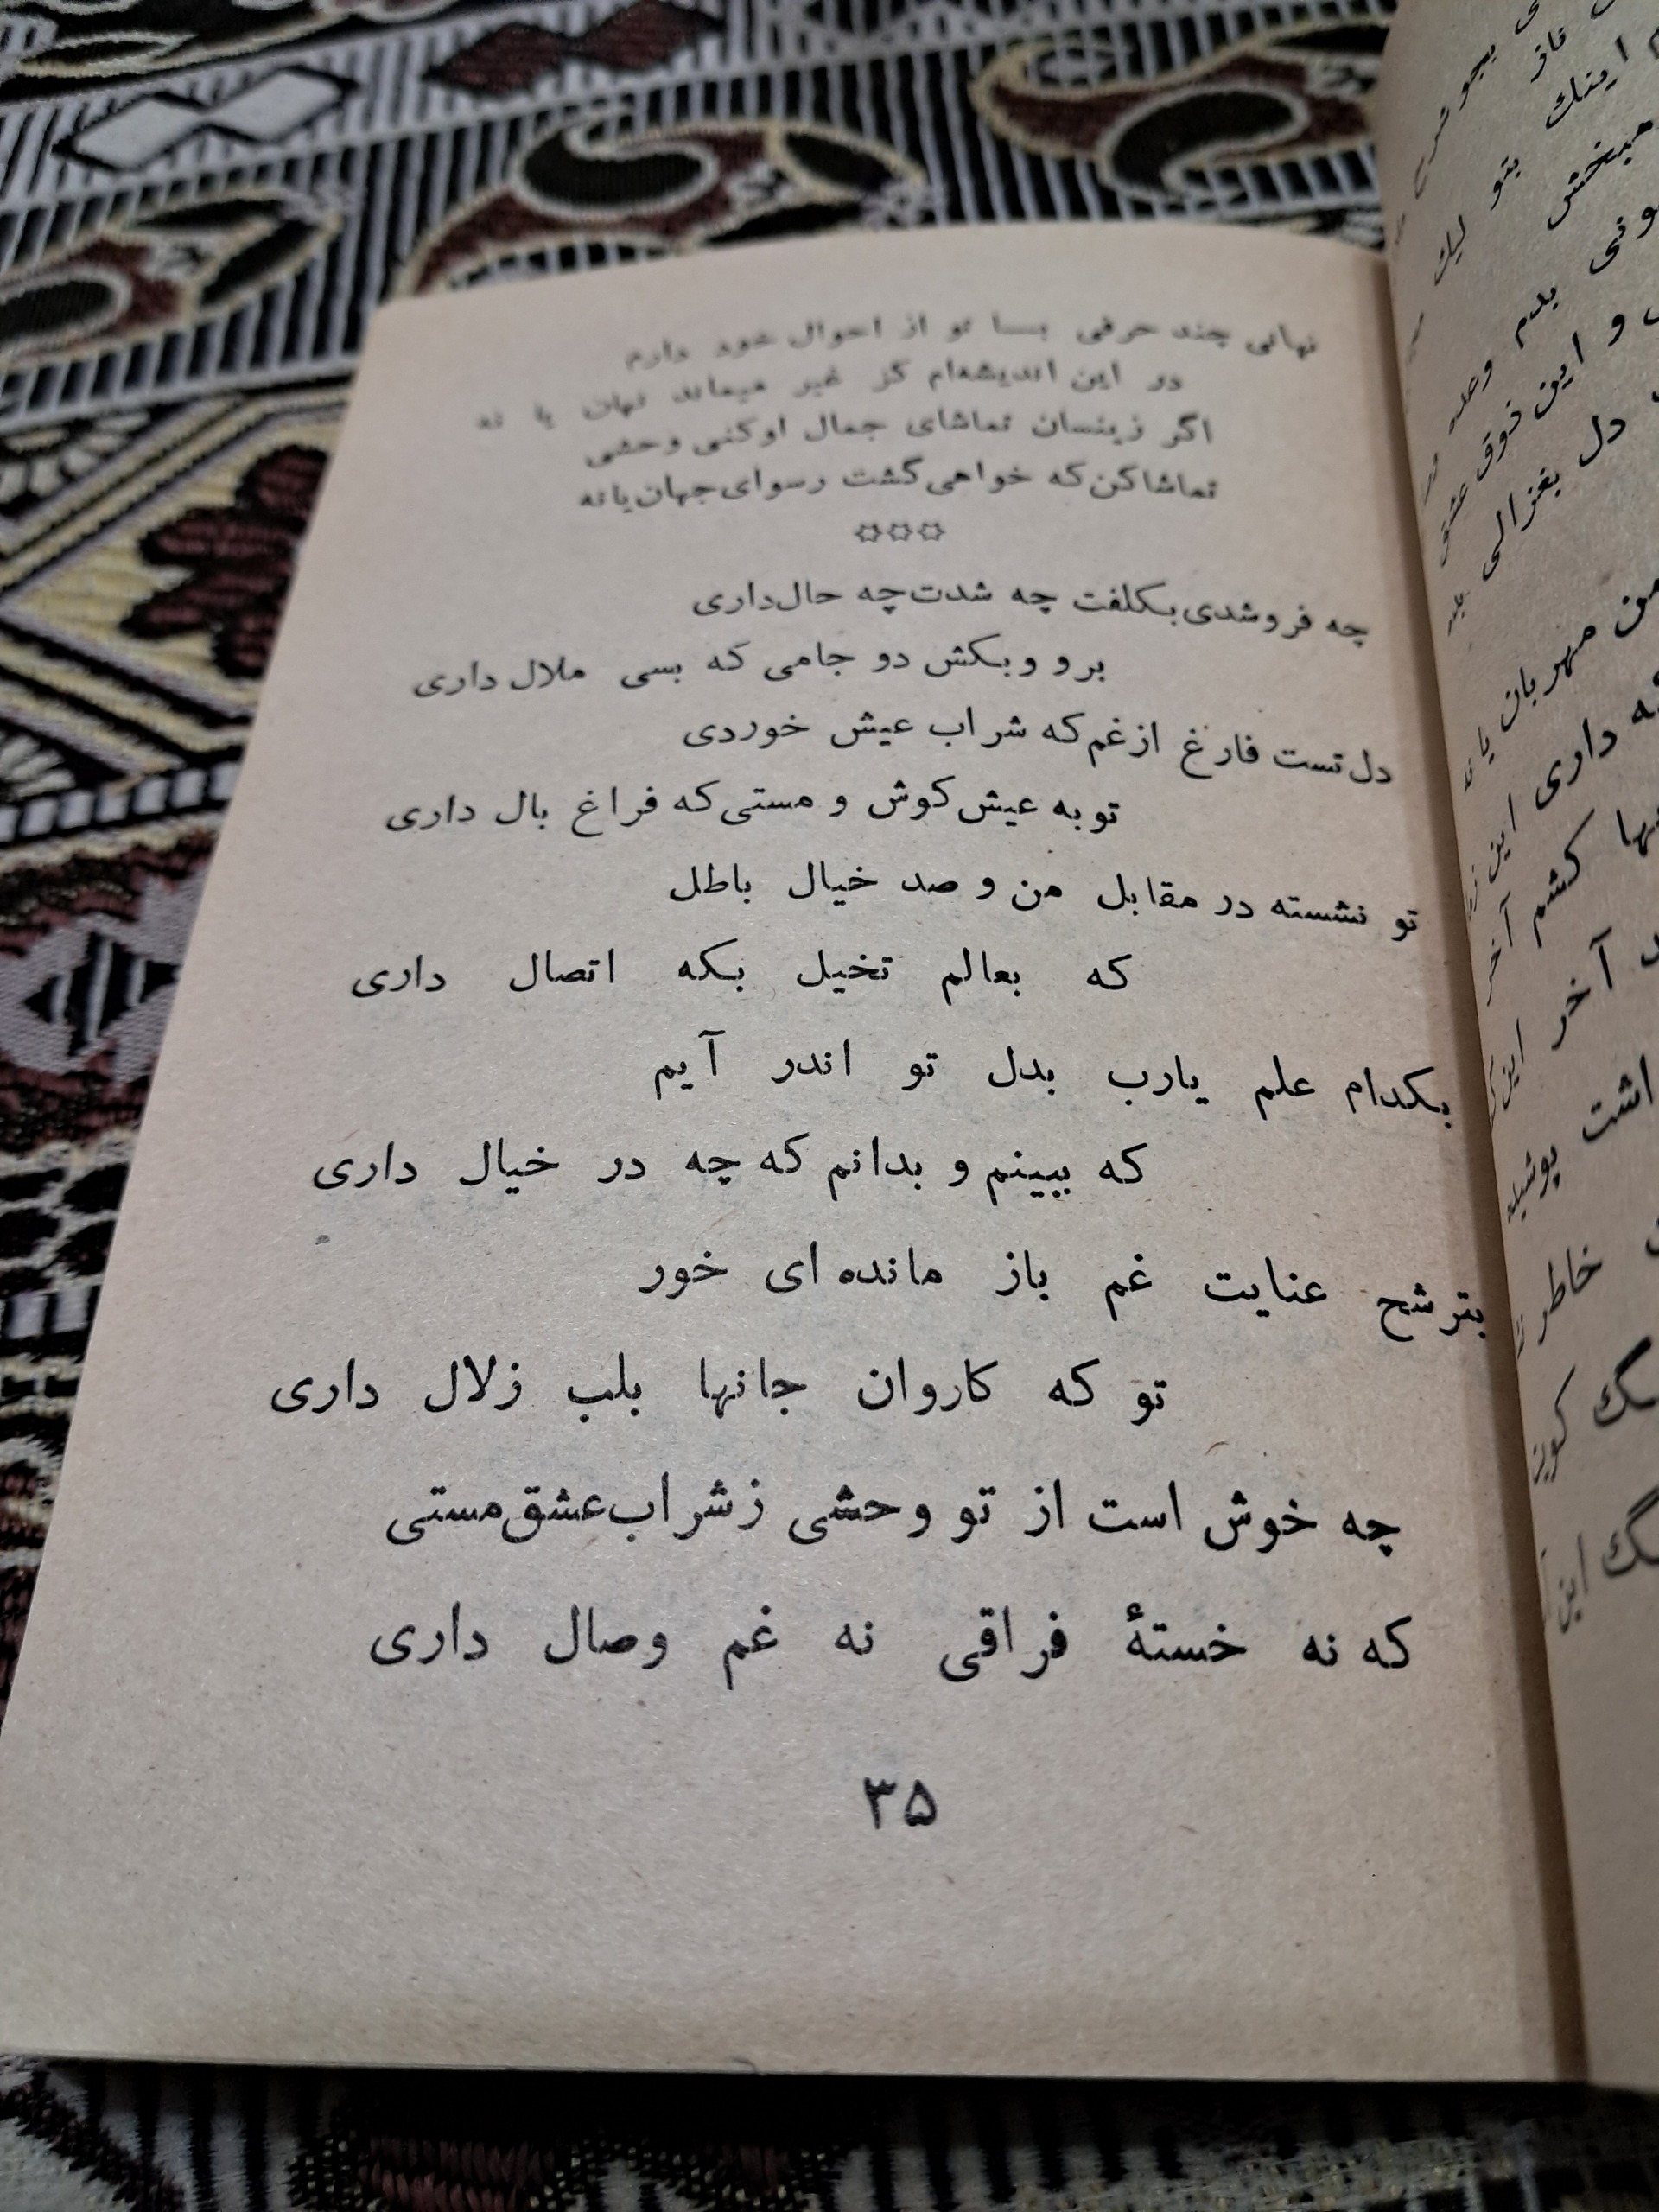 نهانی چند حرفی بسا تو از احوال خود دارم
در این اندیشه‌ام کز غیر میماند نهان یا نه
اگر زینسان تماشای جمال او کنی وحشی
تماشا کن که خواهی گشت رسوای جهان یا نه
✩✩✩
چه فرو شدی بکلفت چه شدت چه حال داری
برو و بکش دو جامی که بسی ملال داری
دل تست فارغ از غم که شراب عیش خوردی
تو به عیش کوش و مستی که فراغ بال داری
تو نشسته در مقابل من و صد خیال باطل
که بعالم تخیل بکه اتصال داری
بکدام علم یارب بدل تو اندر آیم
که ببینم و بدانم که چه در خیال داری
بترشح عنایت غم باز مانده ای خور
تو که کاروان جانها بلب زلال داری
چه خوش است از تو وحشی ز شراب عشق مستی
که نه خستهٔ فراقی نه غم وصال داری
۳۵
اینك
بتو لیك
میبخش
بدم وعده
و این ذوق عشق
دل بغزالی
من مهربان یا نه
داری این
کشم آخر
آخر این
پوشیده
خاطر